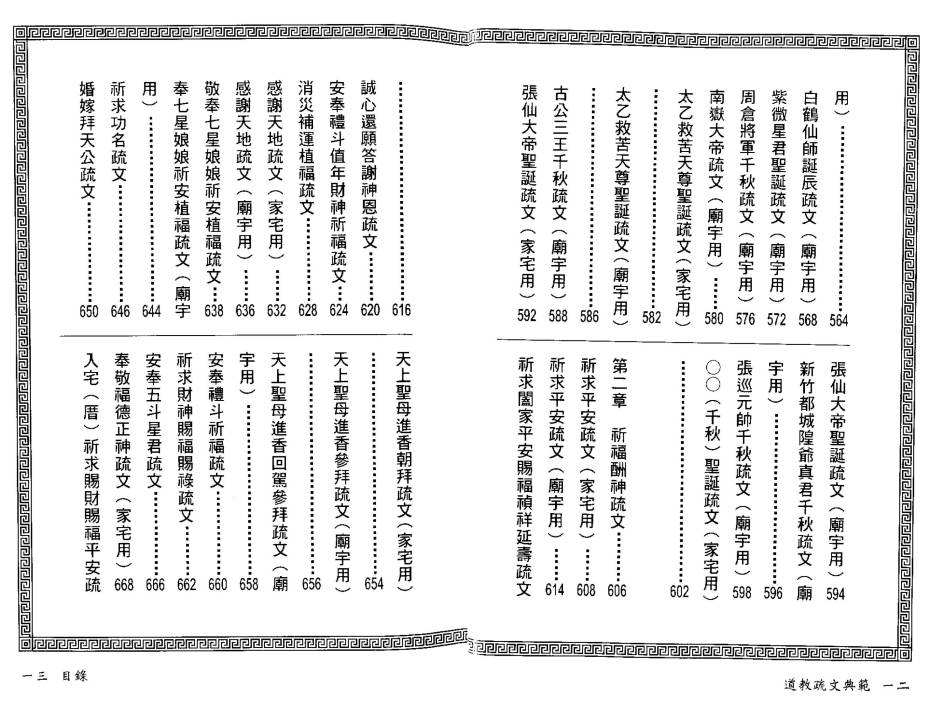 用）……………564
白鶴仙師誕辰疏文（廟宇用）568
紫微星君聖誕疏文（廟宇用）572
周倉將軍千秋疏文（廟宇用）576
南嶽大帝疏文（廟宇用）……580
太乙救苦天尊聖誕疏文（家宅用）
……………582
太乙救苦天尊聖誕疏文（廟宇用）
……………586
古公三王千秋疏文（廟宇用）588
張仙大帝聖誕疏文（家宅用）592
張仙大帝聖誕疏文（廟宇用）594
新竹都城隍爺真君千秋疏文（廟
宇用）……………596
張巡元帥千秋疏文（廟宇用）598
○○（千秋）聖誕疏文（家宅用）
……………602
第二章　祈福酬神疏文……606
祈求平安疏文（家宅用）……608
祈求平安疏文（廟宇用）……614
祈求闔家平安賜福禎祥延壽疏文
道教疏文典範　一二
……………616
誠心還願答謝神恩疏文……620
安奉禮斗值年財神祈福疏文…624
消災補運植福疏文……………628
感謝天地疏文（家宅用）……632
感謝天地疏文（廟宇用）……636
敬奉七星娘娘祈安植福疏文…638
奉七星娘娘祈安植福疏文（廟宇
用）……………644
祈求功名疏文……………646
婚嫁拜天公疏文……………650
天上聖母進香朝拜疏文（家宅用）
……………654
天上聖母進香參拜疏文（廟宇用）
……………656
天上聖母進香回駕參拜疏文（廟
宇用）……………658
安奉禮斗祈福疏文……………660
祈求財神賜福賜祿疏文……662
安奉五斗星君疏文……………666
奉敬福德正神疏文（家宅用）668
入宅（厝）祈求賜財賜福平安疏
一三　目錄